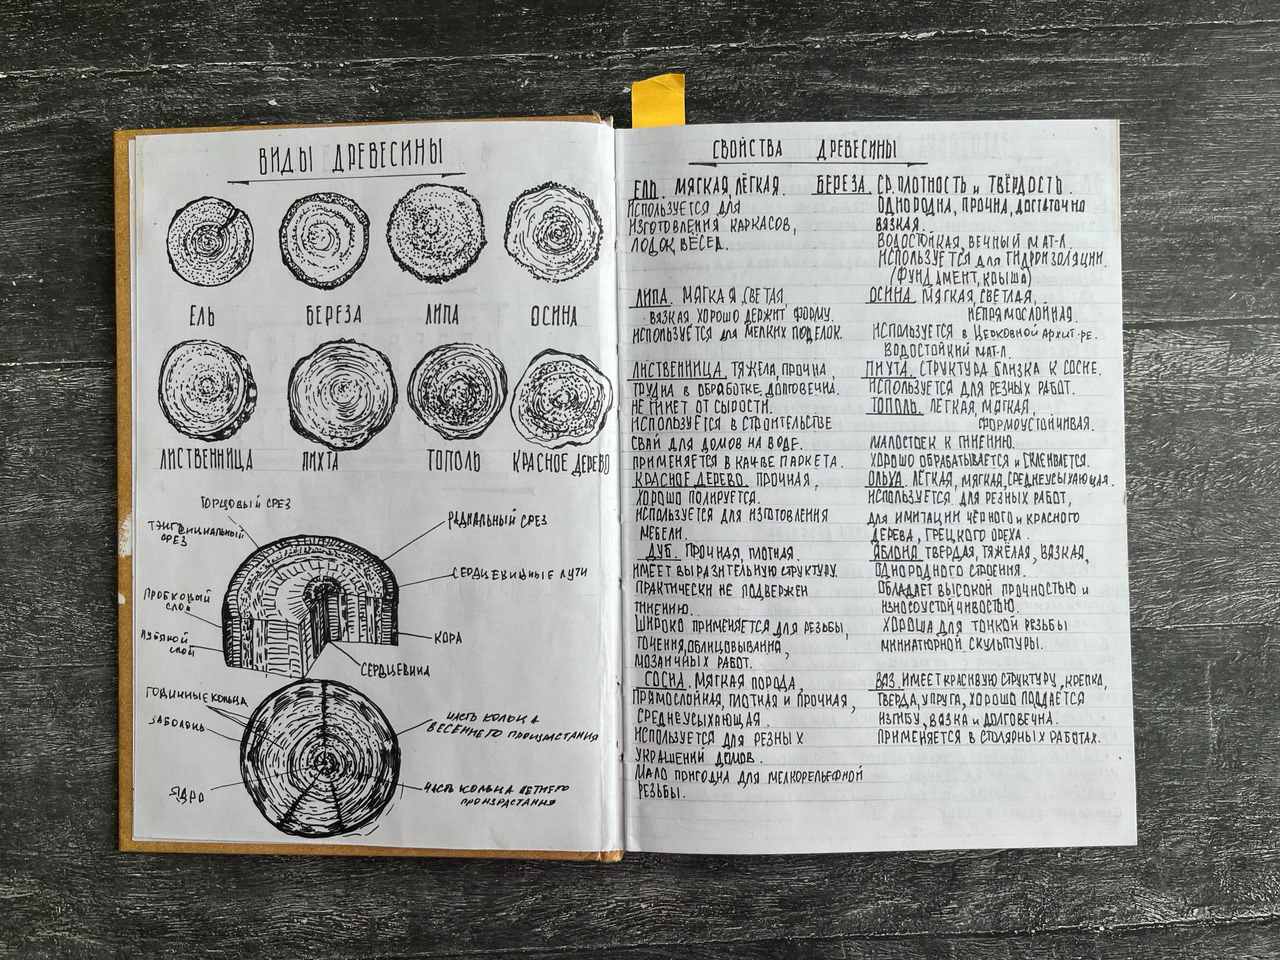 ВИДЫ ДРЕВЕСИНЫ
ЕЛЬ
БЕРЕЗА
ЛИПА
ОСИНА
ЛИСТВЕННИЦА
ПИХТА
ТОПОЛЬ
КРАСНОЕ ДЕРЕВО
ТОРЦОВЫЙ СРЕЗ
ТЭНГОНЦИАЛЬНЫЙ
СРЕЗ
ПРОБКОВЫЙ
СЛОЙ
ЛУБЯНОЙ
СЛОЙ
РАДИАЛЬНЫЙ СРЕЗ
СЕРДЦЕВИЦНЫЕ ЛУТИ
КОРА
СЕРДЦЕВИНА
ГОДИЧНЫЕ КОЛЬЦА
ЗАБОЛОНЬ
ЯДРО
ЧАСТЬ КОЛЬЦА
ВЕСЕННЕГО ПРОИЗРАСТАНИЯ
ЧАСТЬ КОЛЬЦА ЛЕТНЕГО
ПРОИЗРАСТАНИЯ
СВОЙСТВА ДРЕВЕСИНЫ
ЕЛЬ. МЯГКАЯ, ЛЁГКАЯ.
ИСПОЛЬЗУЕТСЯ ДЛЯ
ИЗГОТОВЛЕНИЯ КАРКАСОВ,
ЛОДОК, ВЁСЕЛ.
ЛИПА. МЯГКАЯ, СВЕТЛАЯ,
ВЯЗКАЯ ХОРОШО ДЕРЖИТ ФОРМУ.
ИСПОЛЬЗУЕТСЯ ДЛЯ МЕЛКИХ ПОДЕЛОК.
ЛИСТВЕННИЦА. ТЯЖЕЛА, ПРОЧНА,
ТРУДНА В ОБРАБОТКЕ, ДОЛГОВЕЧНА.
НЕ ГНИЕТ ОТ СЫРОСТИ.
ИСПОЛЬЗУЕТСЯ В СТРОИТЕЛЬСТВЕ
СВАЙ ДЛЯ ДОМОВ НА ВОДЕ.
ПРИМЕНЯЕТСЯ В КАЧ-ВЕ ПАРКЕТА.
КРАСНОЕ ДЕРЕВО. ПРОЧНАЯ,
ХОРОШО ПОЛИРУЕТСЯ.
ИСПОЛЬЗУЕТСЯ ДЛЯ ИЗГОТОВЛЕНИЯ
МЕБЕЛИ.
ДУБ. ПРОЧНАЯ, ПЛОТНАЯ.
ИМЕЕТ ВЫРАЗИТЕЛЬНУЮ СТРУКТУРУ.
ПРАКТИЧЕСКИ НЕ ПОДВЕРЖЕН
ГНИЕНИЮ.
ШИРОКО ПРИМЕНЯЕТСЯ ДЛЯ РЕЗЬБЫ,
ТОЧЕНИЯ, ОБЛИЦОВЫВАНИЯ,
МОЗАИЧНЫХ РАБОТ.
СОСНА. МЯГКАЯ ПОРОДА,
ПРЯМОСЛОЙНАЯ, ПЛОТНАЯ И ПРОЧНАЯ,
СРЕДНЕУСЫХАЮЩАЯ.
ИСПОЛЬЗУЕТСЯ ДЛЯ РЕЗНЫХ
УКРАШЕНИЙ ДОМОВ.
МАЛО ПРИГОДНА ДЛЯ МЕЛКОРЕЛЬЕФНОЙ
РЕЗЬБЫ.
БЕРЕЗА. СР. ПЛОТНОСТЬ и ТВЁРДОСТЬ.
ОДНОРОДНА, ПРОЧНА, ДОСТАТОЧНО
ВЯЗКАЯ.
ВОДОСТОЙКАЯ, ВЕЧНЫЙ МАТ-Л.
ИСПОЛЬЗУЕТСЯ ДЛЯ ГИДРОИЗОЛЯЦИИ.
(ФУНДАМЕНТ, КРЫША)
ОСИНА. МЯГКАЯ, СВЕТЛАЯ,
НЕПРЯМОСЛОЙНАЯ.
ИСПОЛЬЗУЕТСЯ В ЦЕРКОВНОЙ АРХИТ-РЕ.
ВОДОСТОЙКИЙ МАТ-Л.
ПИХТА. СТРУКТУРА БЛИЗКА К СОСНЕ.
ИСПОЛЬЗУЕТСЯ ДЛЯ РЕЗНЫХ РАБОТ.
ТОПОЛЬ. ЛЁГКАЯ, МЯГКАЯ,
ФОРМОУСТОЙЧИВАЯ.
МАЛОСТОЕК К ГНИЕНИЮ.
ХОРОШО ОБРАБАТЫВАЕТСЯ И СКЛЕИВАЕТСЯ.
ОЛЬХА. ЛЁГКАЯ, МЯГКАЯ, СРЕДНЕУСЫХАЮЩАЯ.
ИСПОЛЬЗУЕТСЯ ДЛЯ РЕЗНЫХ РАБОТ,
ДЛЯ ИМИТАЦИИ ЧЁРНОГО И КРАСНОГО
ДЕРЕВА, ГРЕЦКОГО ОРЕХА.
ЯБЛОНЯ ТВЁРДАЯ, ТЯЖЁЛАЯ, ВЯЗКАЯ,
ОДНОРОДНОГО СТРОЕНИЯ.
ОБЛАДАЕТ ВЫСОКОЙ ПРОЧНОСТЬЮ И
ИЗНОСОУСТОЙЧИВОСТЬЮ.
ХОРОША ДЛЯ ТОНКОЙ РЕЗЬБЫ
МИНИАТЮРНОЙ СКУЛЬПТУРЫ.
ВЯЗ. ИМЕЕТ КРАСИВУЮ СТРУКТУРУ, КРЕПКА,
ТВЕРДА, УПРУГА, ХОРОШО ПОДДАЕТСЯ
ИЗГИБУ, ВЯЗКА И ДОЛГОВЕЧНА.
ПРИМЕНЯЕТСЯ В СТОЛЯРНЫХ РАБОТАХ.